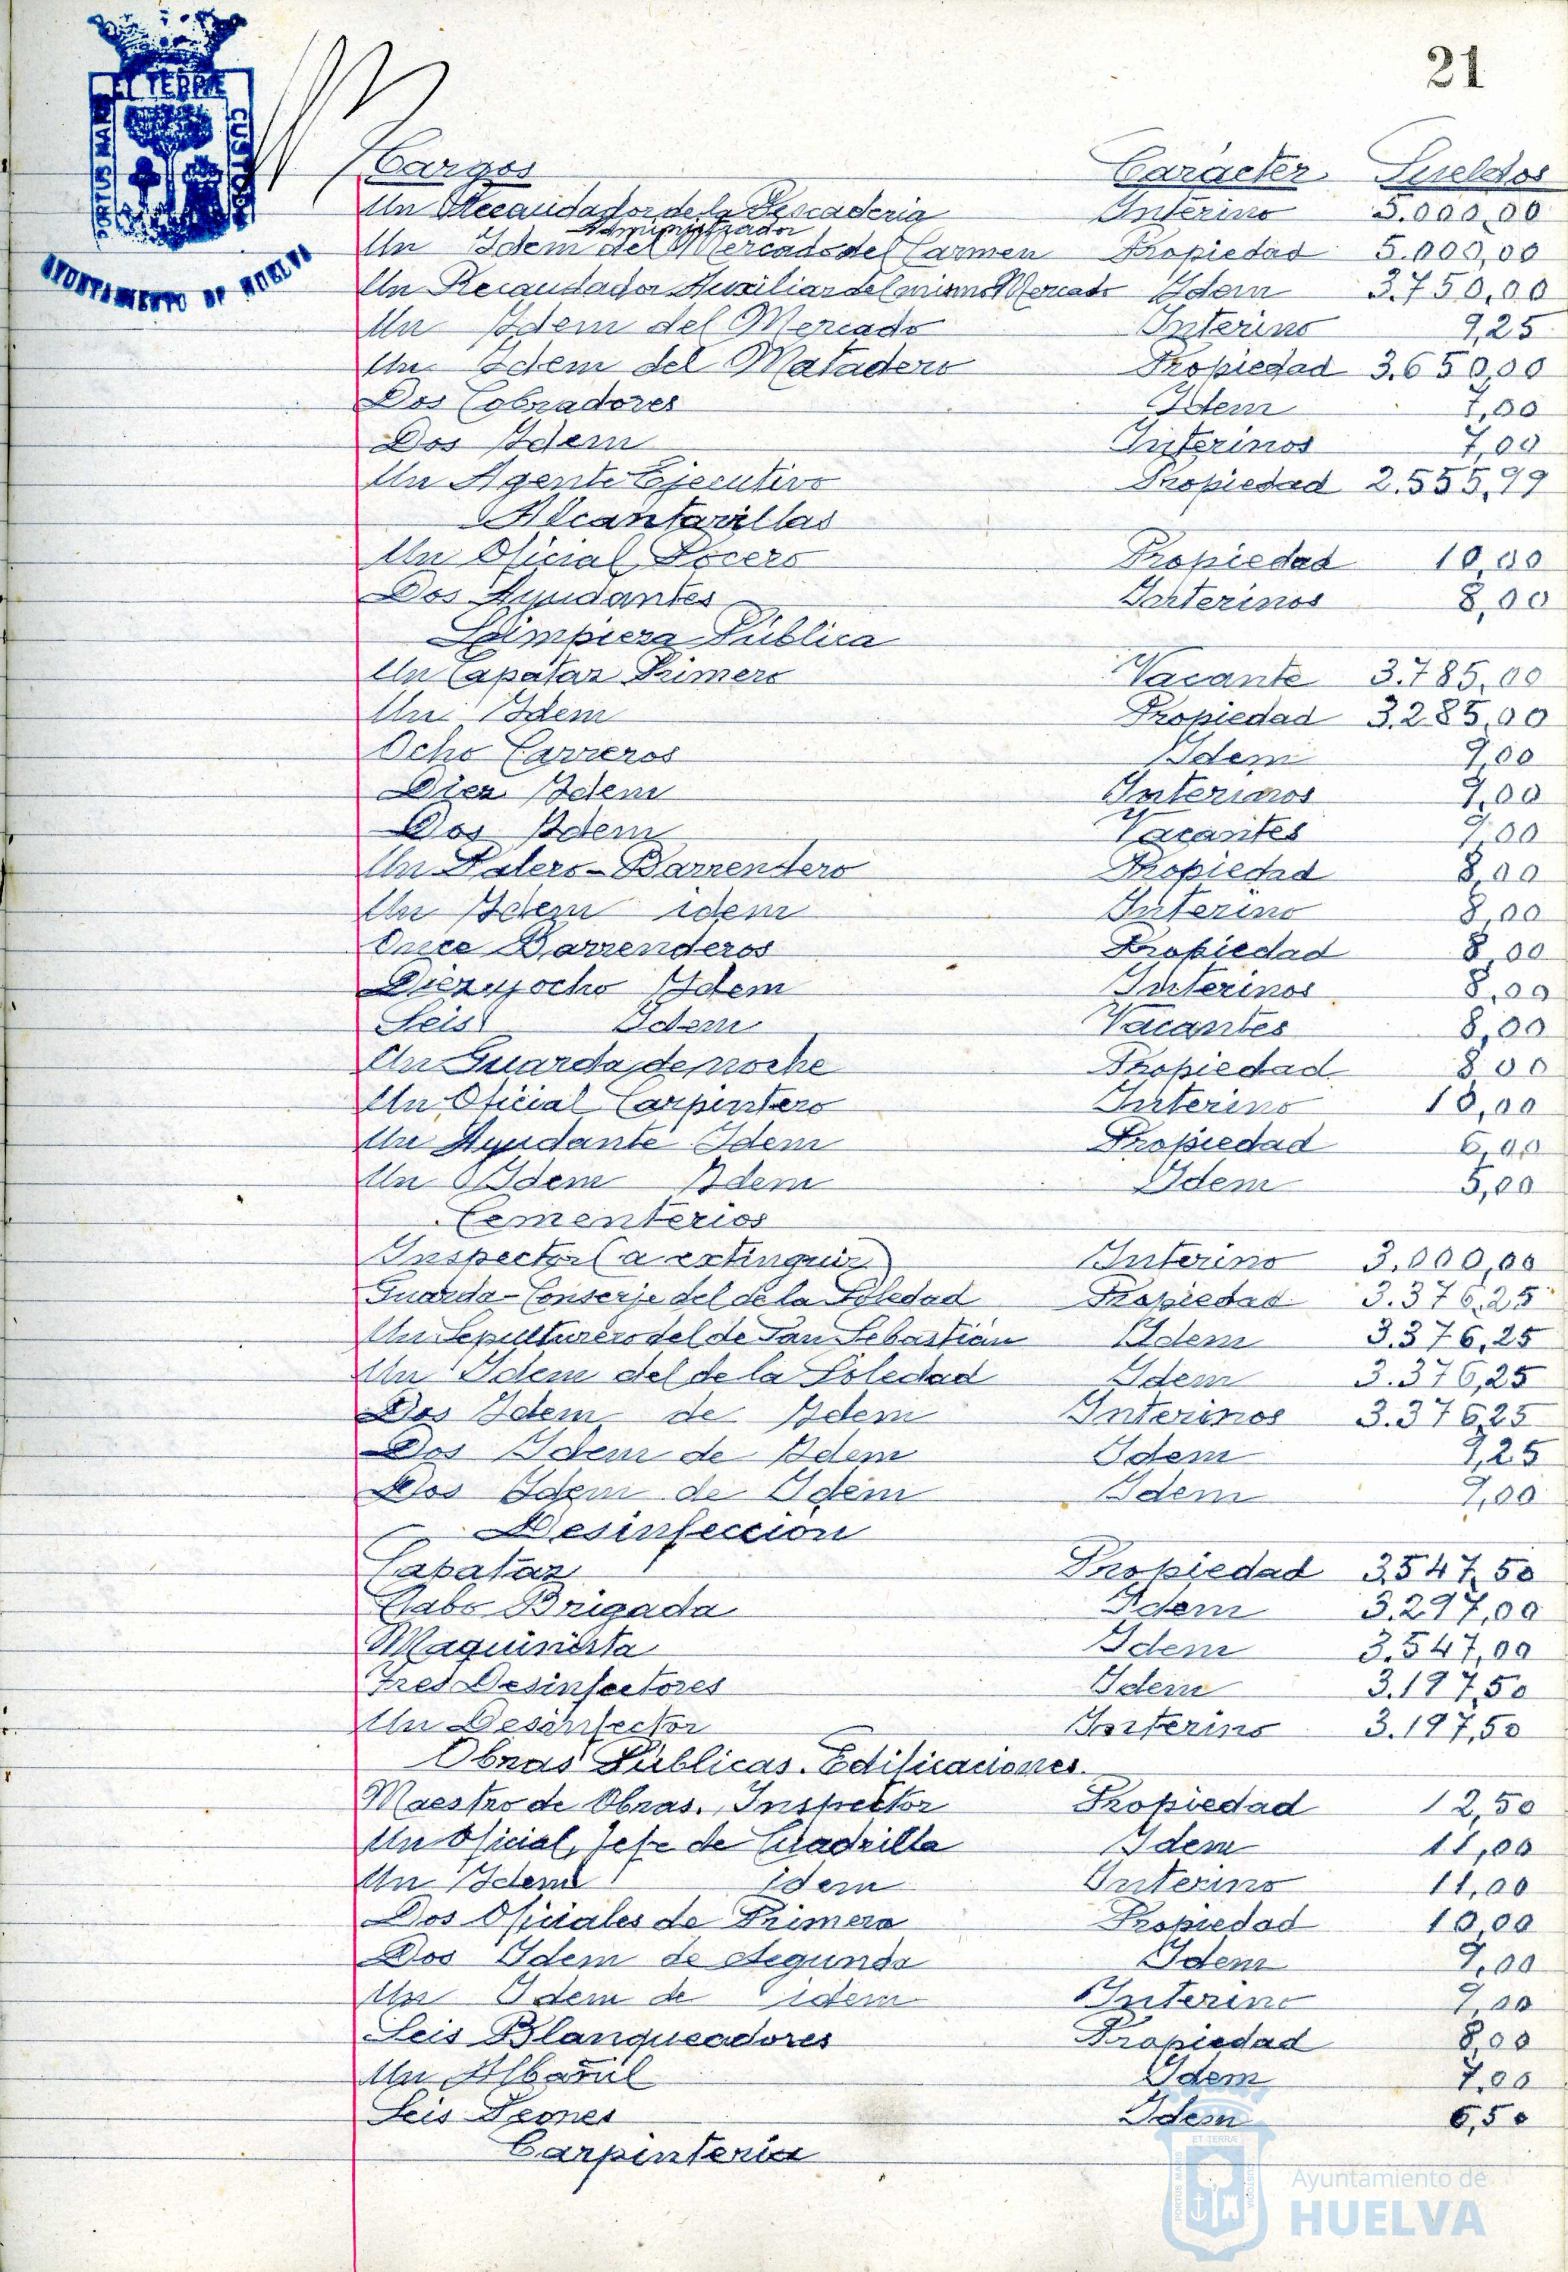 21
ET TERRÆ
PORTUS MARIS
CUSTODIA
AYUNTAMIENTO DE HUELVA
Cargos Carácter Sueldos
Un Recaudador de la Pescaderia Interino 5.000,00
Administrador
Un Idem del Mercado del Carmen Propiedad 5.000,00
Un Recaudador Auxiliar del mismo Mercado Idem 3.750,00
Un Idem del Mercado Interino 9,25
Un Idem del Matadero Propiedad 3.650,00
Dos Cobradores Idem 7,00
Dos Idem Interinos 7,00
Un Agente Ejecutivo Propiedad 2.555,99
Alcantarillas
Un Oficial Pocero Propiedad 10,00
Dos Ayudantes Interinos 8,00
Limpieza Pública
Un Capataz Primero Vacante 3.785,00
Un Idem Propiedad 3.285,00
Ocho Carreros Idem 9,00
Diez Idem Interinos 9,00
Dos Idem Vacantes 9,00
Un Palero-Barrendero Propiedad 8,00
Un Idem idem Interino 8,00
Once Barrenderos Propiedad 8,00
Diezyocho Idem Interinos 8,00
Seis Idem Vacantes 8,00
Un Guarda de noche Propiedad 8 00
Un Oficial Carpintero Interino 10,00
Un Ayudante Idem Propiedad 6,00
Un Idem Idem Idem 5,00
Cementerios
Inspector (a extinguir) Interino 3.000,00
Guarda-Conserje del de la Soledad Propiedad 3.376,25
Un Sepulturero del de San Sebastián Idem 3.376,25
Un Idem del de la Soledad Idem 3.376,25
Dos Idem de Idem Interinos 3.376,25
Dos Idem de Idem Idem 9,25
Dos Idem de Idem Idem 9,00
Desinfección
Capataz Propiedad 3.547,50
Cabo Brigada Idem 3.297,00
Maquinista Idem 3.547,00
Tres Desinfectores Idem 3.197,50
Un Desinfector Interino 3.197,50
Obras Públicas. Edificaciones.
Maestro de Obras. Inspector Propiedad 12,50
Un Oficial, Jefe de Cuadrilla Idem 11,00
Un Idem idem Interino 11,00
Dos Oficiales de Primera Propiedad 10,00
Dos Idem de Segunda Idem 9,00
Un Idem de idem Interino 9,00
Seis Blanqueadores Propiedad 8,00
Un Albañil Idem 7,00
Seis Peones Idem 6,50
Carpinteria
ET TERRÆ
PORTUS MARIS
CUSTODIA
Ayuntamiento de
HUELVA